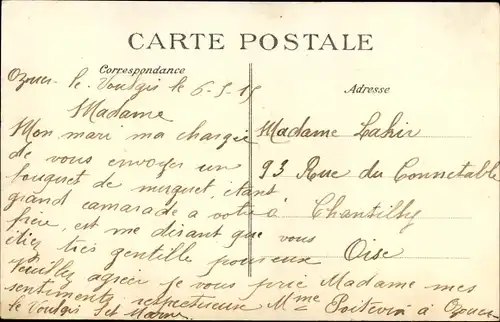 CARTE POSTALE
Correspondance
Adresse
Ozouer le Voulgis le 6-5-15
Madame
Mon mari ma chargée
de vous envoyer un
bouquet de muguet, étant
grand camarade a votre
frère, est me disant que vous
étiez très gentille pour eux
Veuillez agréer je vous prie Madame mes
sentiments respectueux Mme Poitevin à Ozouer
le Voulgis S et Marne
Madame Lahir
93 Rue du Connetable
à Chantilly
Oise